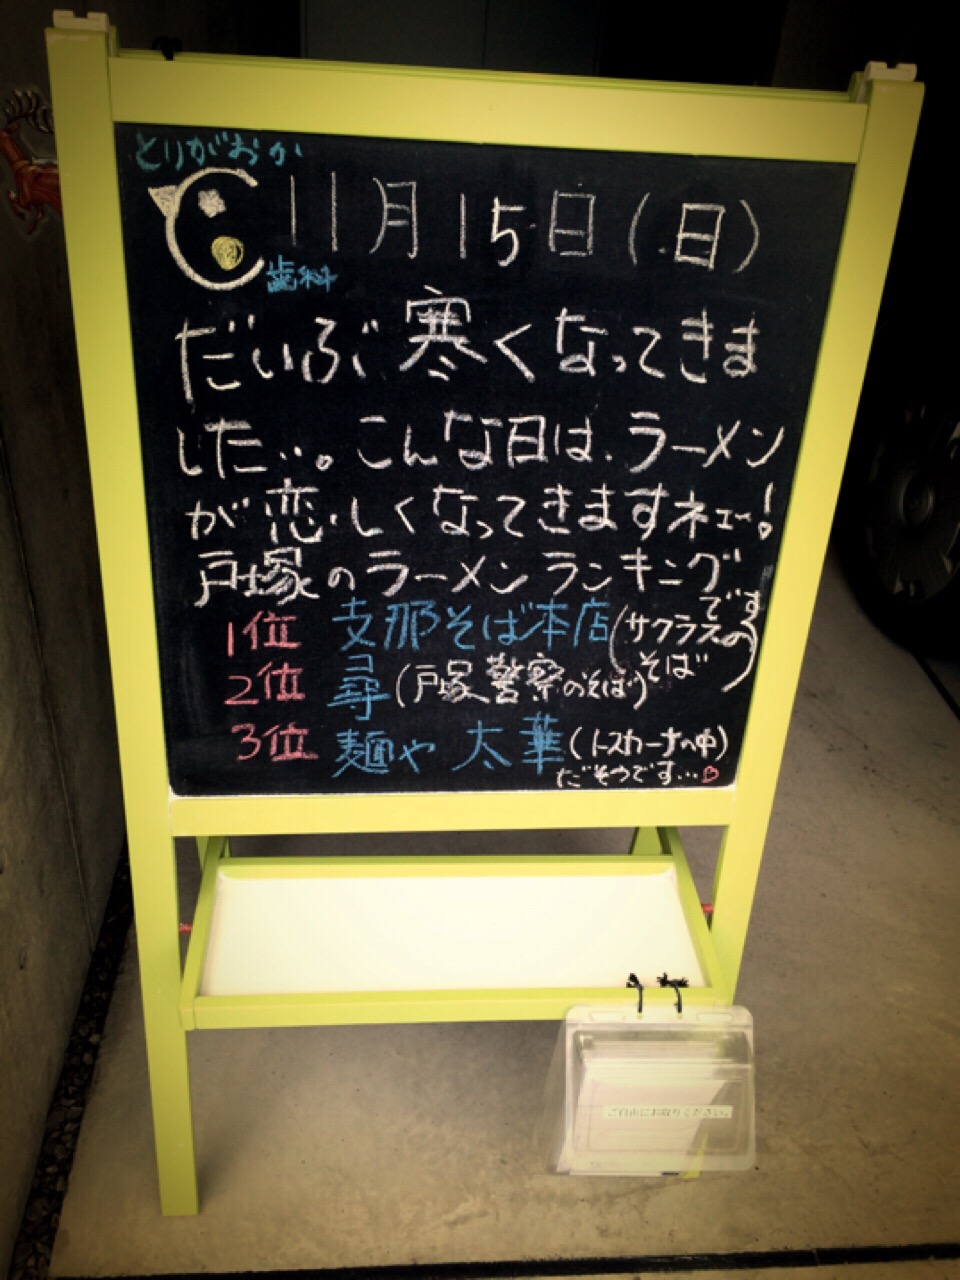 とりがおか
歯科
11月15日(日)
だいぶ寒くなってきま
した…。こんな日は、ラーメン
が恋しくなってきますネェー!
戸塚のラーメンランキングです
1位 支那そば本店(サクラスのそば)
2位 尋(戸塚警察のそば)
3位 麺や 太華(トスカーナの中)
だそうです…♡
ご自由にお取りください。